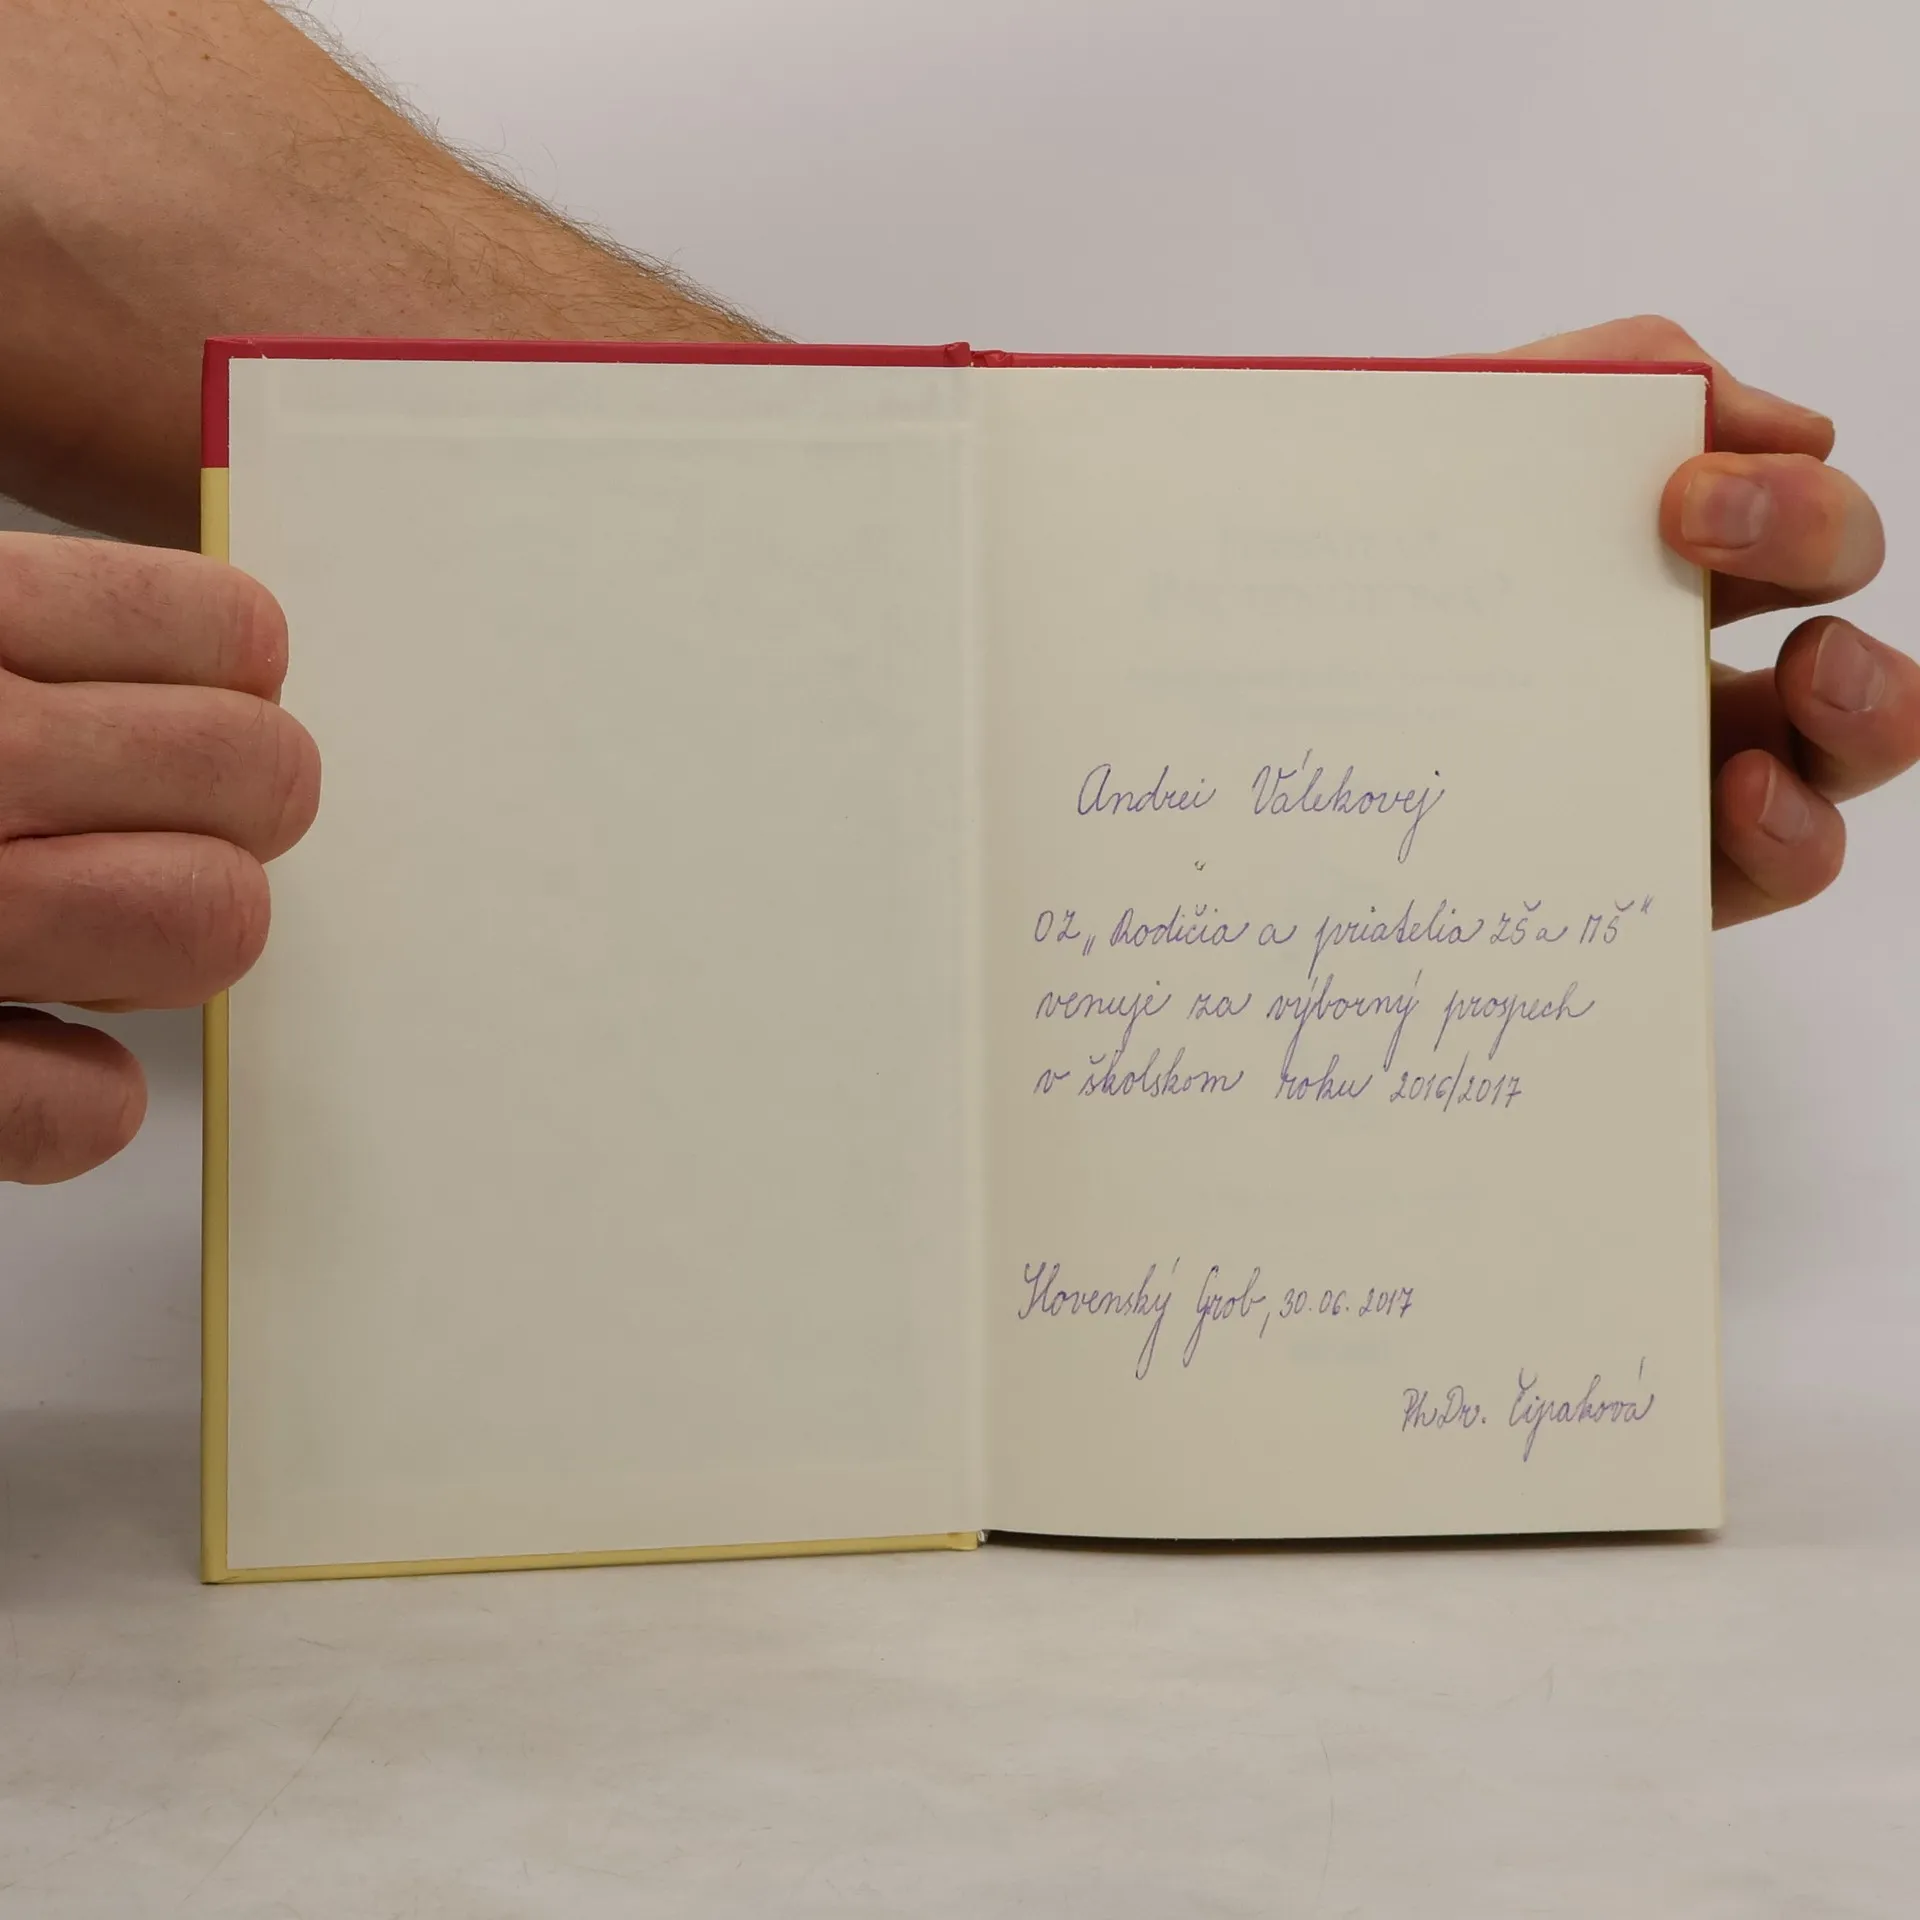 Andrei Válekovej
OZ „Rodičia a priatelia ZŠ a MŠ"
venuje za výborný prospech
v školskom roku 2016/2017
Slovenský Grob, 30.06.2017
PhDr. Čipaková